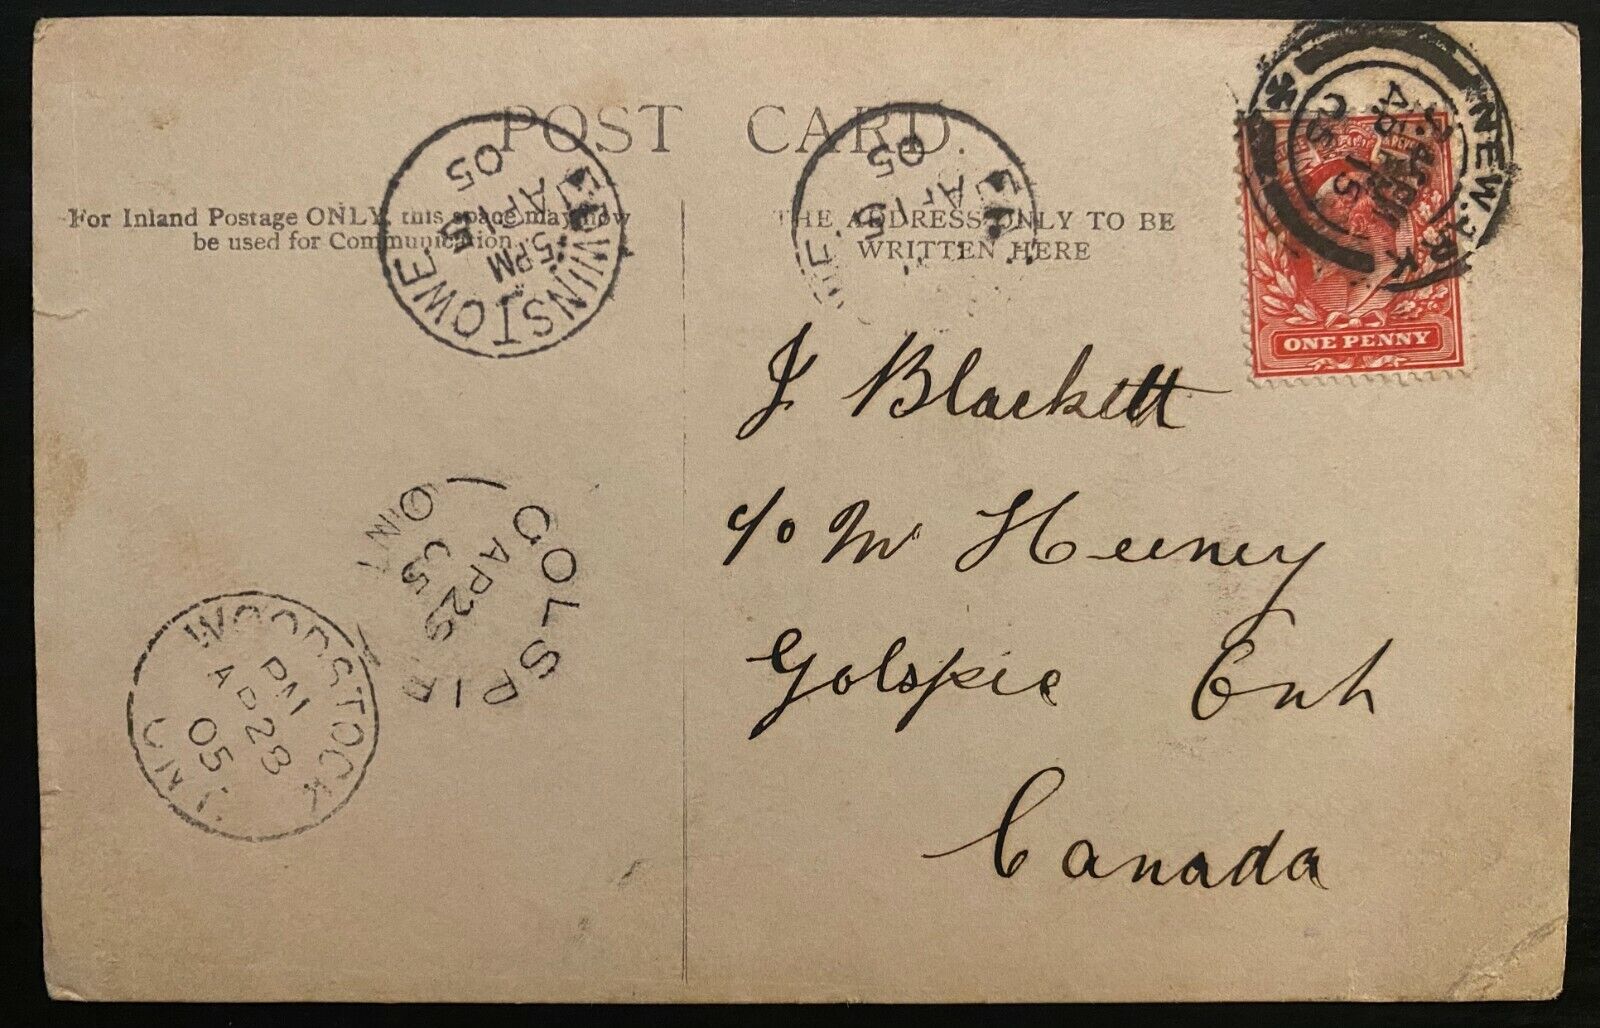 POST CARD.
For Inland Postage ONLY, this space may now
be used for Communication.
THE ADDRESS ONLY TO BE
WRITTEN HERE
EDWINSTOWE
5 PM
AP 15
05
AP 15
05
NEWARK
7.45 PM
AP 15
05
ONE PENNY
J Blackett
c/o Mr Heeney
Golspie Ont
Canada
GOLSPIE
AP 29
05
ONT
WOODSTOCK
PM
AP 28
05
ONT